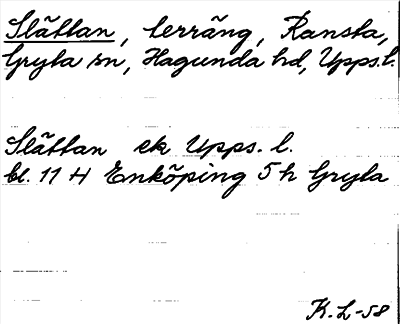 Slättan, terräng, Ransta,
Gryta sn, Hagunda hd, Upps.l.
Slättan ek Upps. l.
bl. 11 H Enköping 5 h Gryta
K.L-58